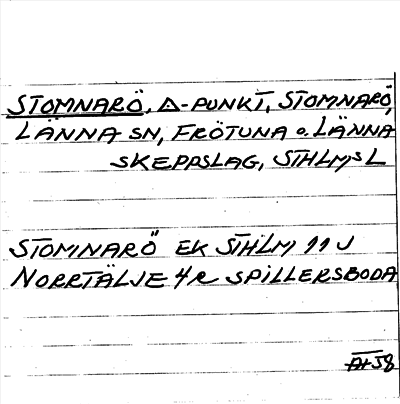 STOMNARÖ, △-PUNKT, STOMNARÖ,
LÄNNA SN, FRÖTUNA o. LÄNNA
SKEPPSLAG, STHLMS L
STOMNARÖ EK STHLM 11 J
NORRTÄLJE 4 R SPILLERSBODA